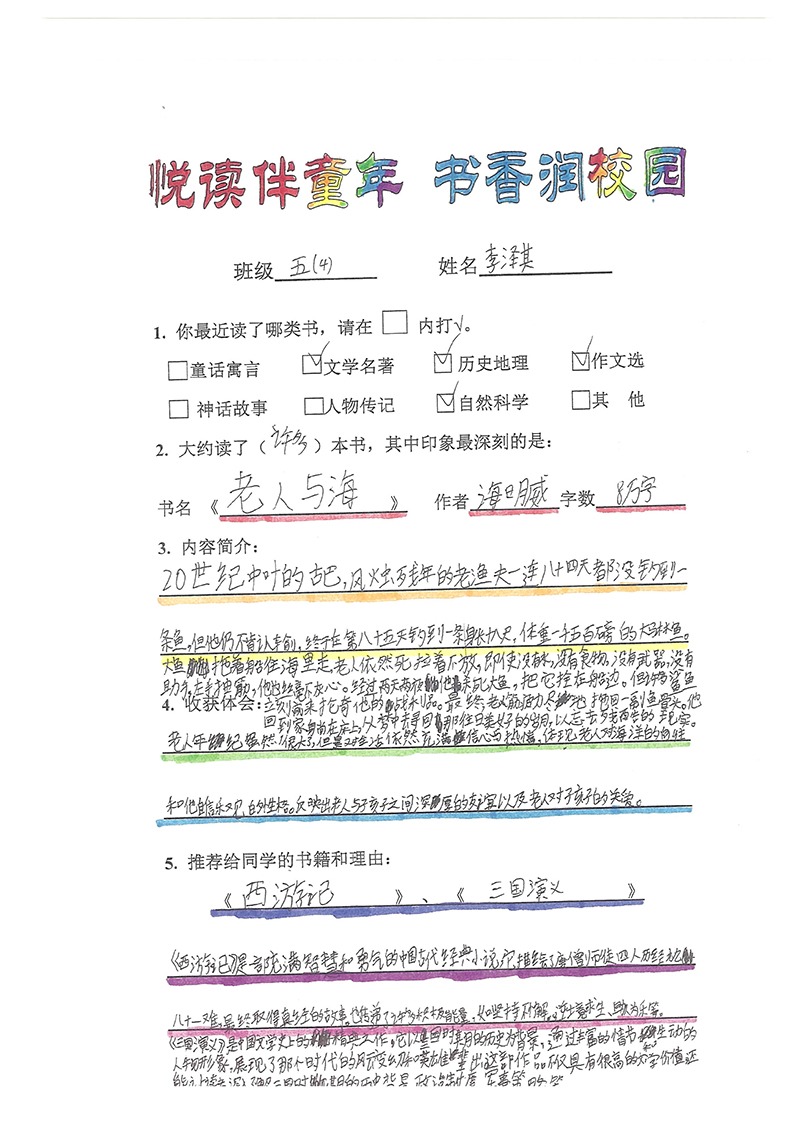 悦读伴童年 书香润校园
班级 五(4) 姓名 李泽淇
1. 你最近读了哪类书，请在□内打√。
□童话寓言 ☑文学名著 ☑历史地理 ☑作文选
□神话故事 □人物传记 ☑自然科学 □其 他
2. 大约读了（许多）本书，其中印象最深刻的是：
书名《老人与海》 作者 海明威 字数 8万字
3. 内容简介：
20世纪中叶的古巴，风烛残年的老渔夫一连八十四天都没钓到一
条鱼，但他仍不肯认，终于在第八十五天钓到一条身长十八尺，体重一千五百磅的大马林鱼。
大鱼拖着船往海里走，老人依然死拉着不放，即使没有水，没有食物，没有武器，没有
助手，左手抽筋，他也丝毫不灰心。经过两天两夜他杀死大鱼，把它拴在船边。但许多鲨鱼
4. 收获体会：立刻前来抢夺他的战利品。最终，老人筋疲力尽地拖回一副鱼骨头。他
回到家躺在床上，从梦中去寻回那往日美好的岁月，以忘却残酷的现实。
老人年纪虽然很大了，但是对生活依然充满信心与热情，体现老人对海洋的
和他自信乐观的性格。反映出老人与孩子之间深厚的友谊以及老人对孩子的关爱。
5. 推荐给同学的书籍和理由：
《西游记》、《三国演义》
《西游记》是一部充满智慧和勇气的中国古代经典小说，它描绘了唐僧师徒四人历经九九
八十一难，最终取得真经的故事。也传递了许多积极能量，如坚持不懈、助人为乐等。
《三国演义》是中国文学史上的经典之作，它以三国时期的历史为背景，通过丰富的情节和生动的
人物形象，展现了那个时代的风云变幻和英雄辈出。这部作品不仅具有很高的文学价值还
能让读者深了解三国时期的历史背景、政治制度、军事策略等